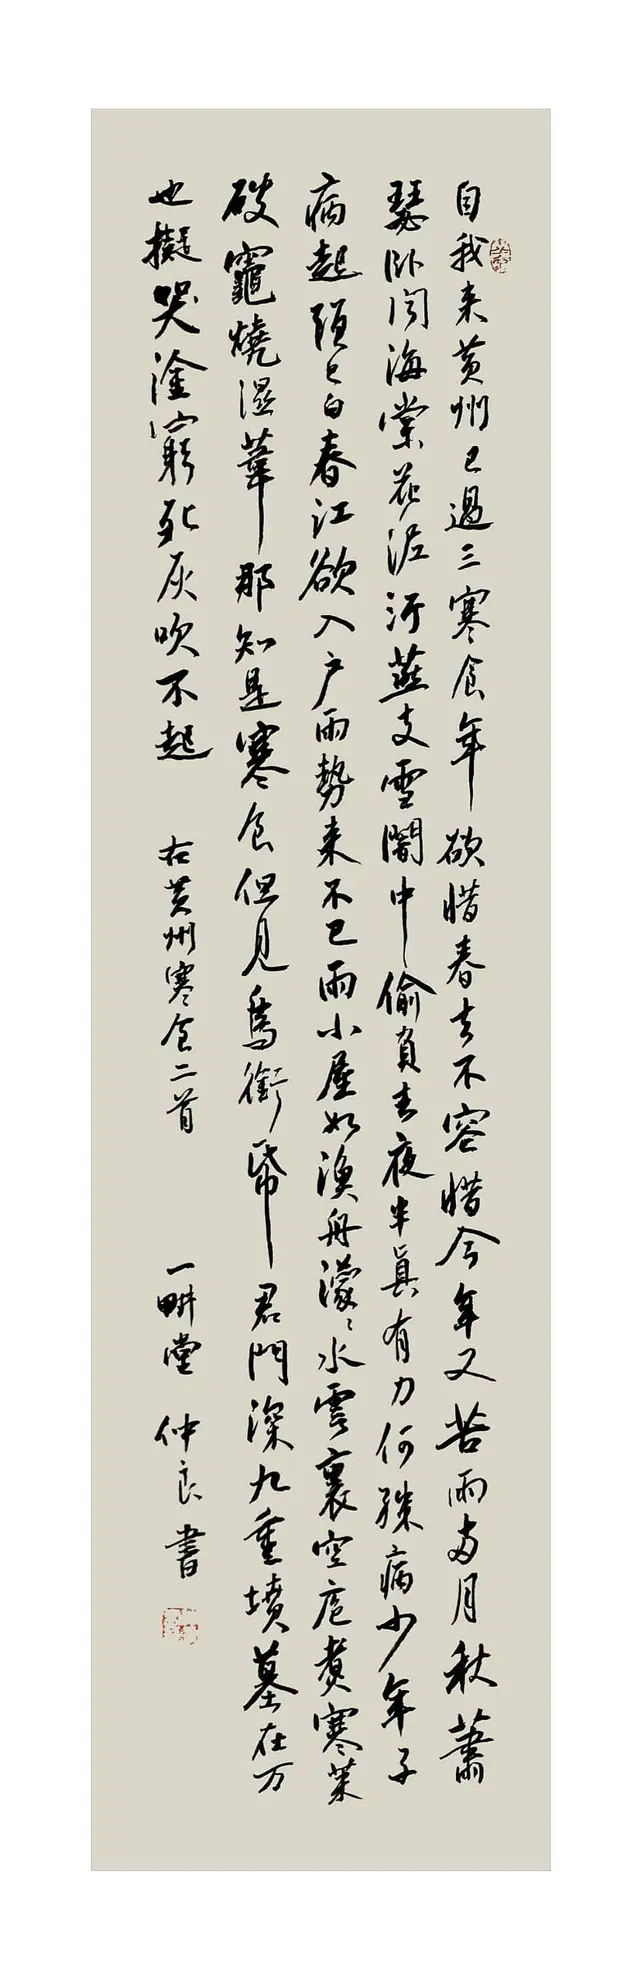 自我来黄州已過三寒食年年欲惜春春去不容惜今年又苦雨两月秋蕭
瑟卧闻海棠花泥汙燕支雪闇中偷負去夜半真有力何殊病少年子
病起頭已白春江欲入户雨勢来不已雨小屋如漁舟濛濛水雲裏空庖煮寒菜
破竈燒湿葦那知是寒食但見烏銜帋君門深九重墳墓在万
也擬哭塗窮死灰吹不起 右黄州寒食二首 一畊堂 仲良書